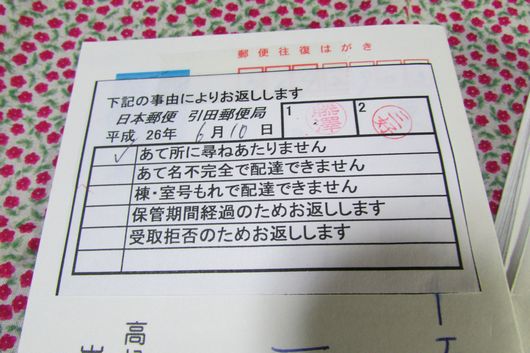 郵便往復はがき
下記の事由によりお返しします
日本郵便 引田郵便局
平成 26年 6月10日
1
2
✓ あて所に尋ねあたりません
あて名不完全で配達できません
棟・室号もれで配達できません
保管期間経過のためお返しします
受取拒否のためお返しします
高